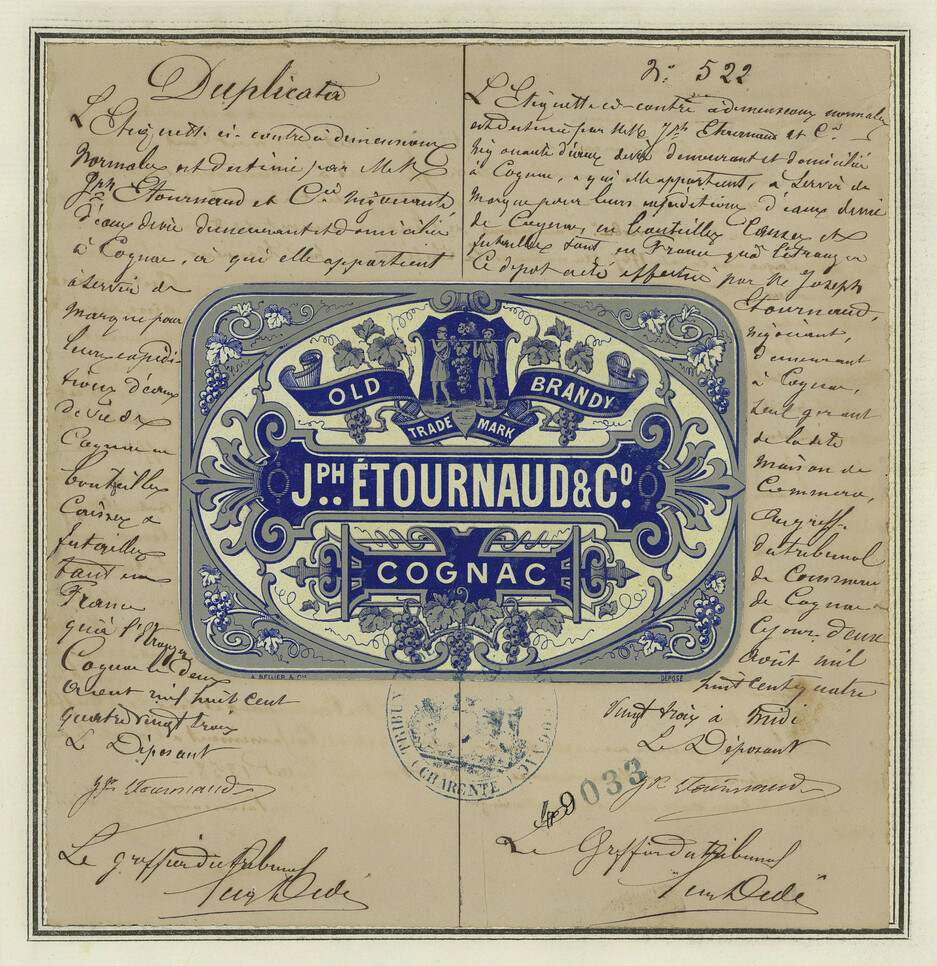 Duplicata
L'Etiquette ci-contre à dimensions
Normales est destiné par M.M.
Jph Etournaud et Cie négociants
d'eaux de vie demeurant et domicilié
à Cognac, à qui elle appartient
à servir de
Marque pour
leurs expédi-
tions d'eaux
de vie de
Cognac en
bouteilles
Caisses &
futailles
tant en
France
qu'à l'Etranger
Cognac le deux
Août mil huit cent
quatre vingt trois
Le Déposant
Jph Etournaud
Le greffier du tribunal
No 522
L'Etiquette ci-contre à dimensions normales
est destiné par M.M. Jph Etournaud et Cie
négociants d'eaux de vie demeurant et domicilié
à Cognac, à qui elle appartient, à servir de
Marque pour leurs expéditions d'eaux de vie
de Cognac, en bouteilles Caisses et
futailles tant en France qu'à l'étranger
Ce dépot a été effectué par Mr Joseph
Etournaud,
négociant,
demeurant
à Cognac,
seul gérant
de la dite
Maison de
Commerce,
Au greffe
du tribunal
de Commerce
de Cognac
Ce jour deux
Août mil
huit cent quatre
Vingt trois à Midi
Le Déposant
Jph Etournaud
Le Greffier du tribunal
OLD BRANDY
TRADE MARK
JPH ÉTOURNAUD & CO.
COGNAC
DÉPOSÉ
CHARENTE
49033